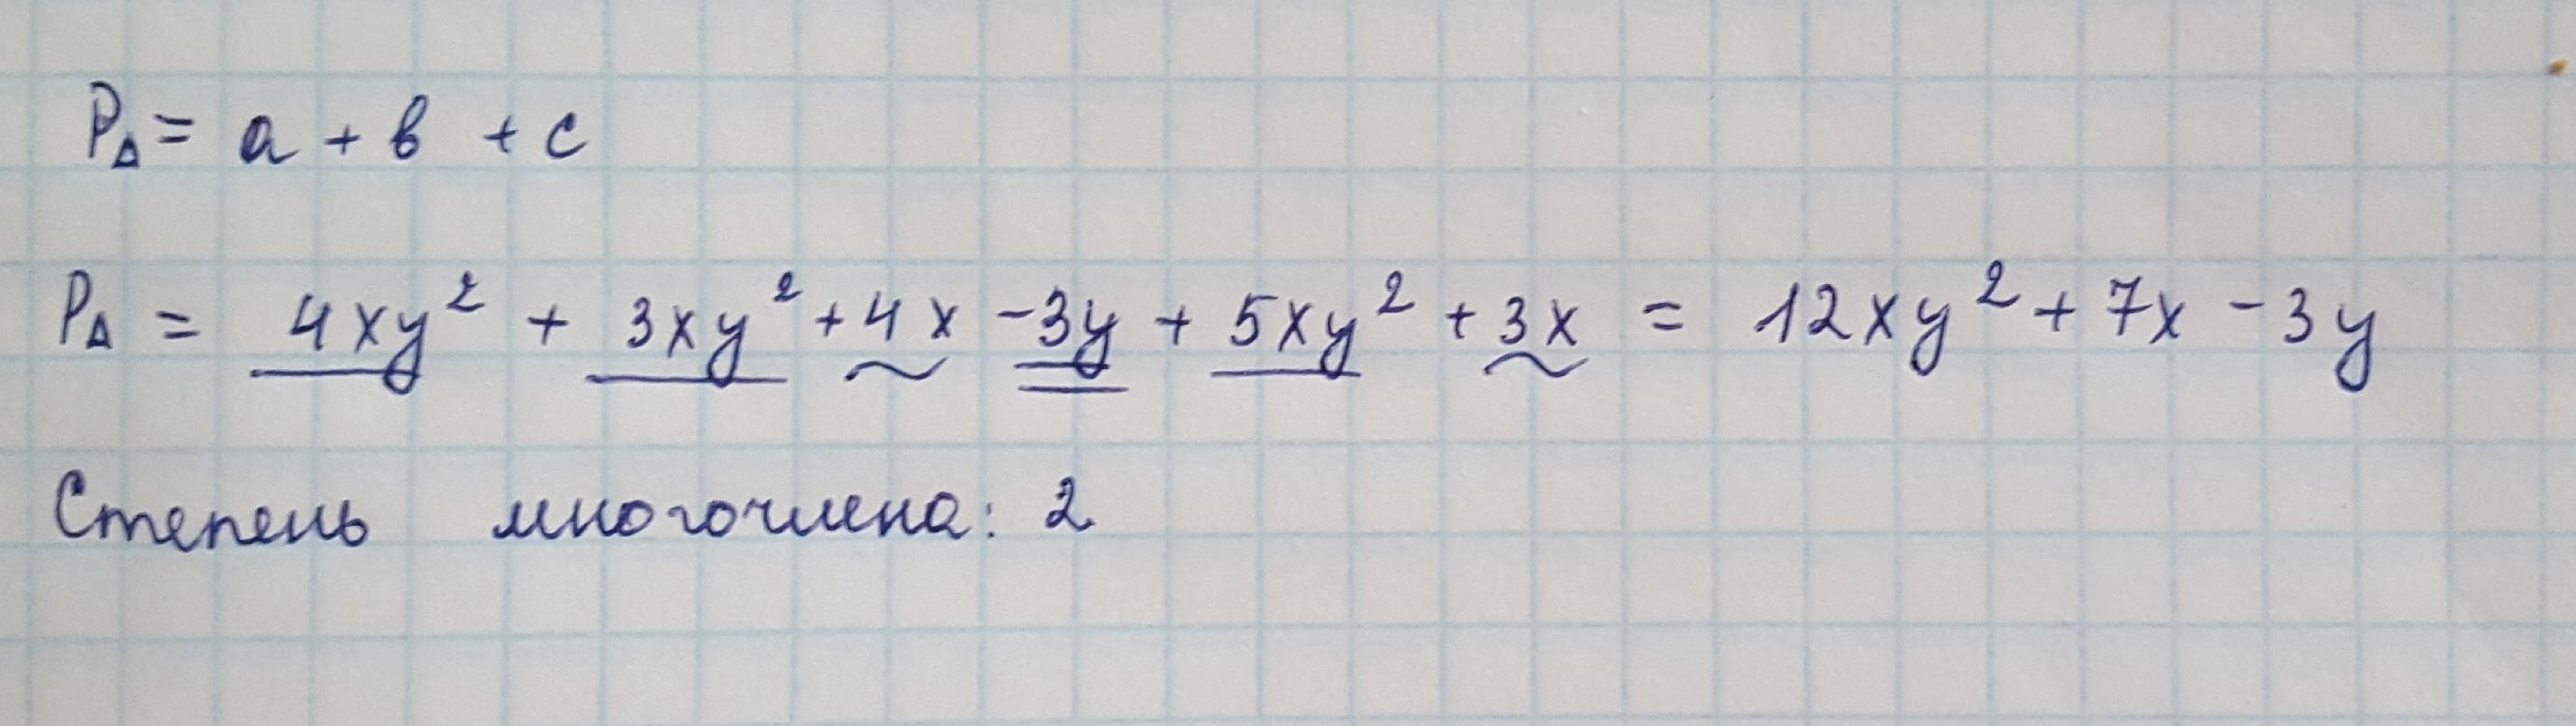 P△ = a + b + c
P△ = 4xy² + 3xy² + 4x - 3y + 5xy² + 3x = 12xy² + 7x - 3y
Степень многочлена: 2